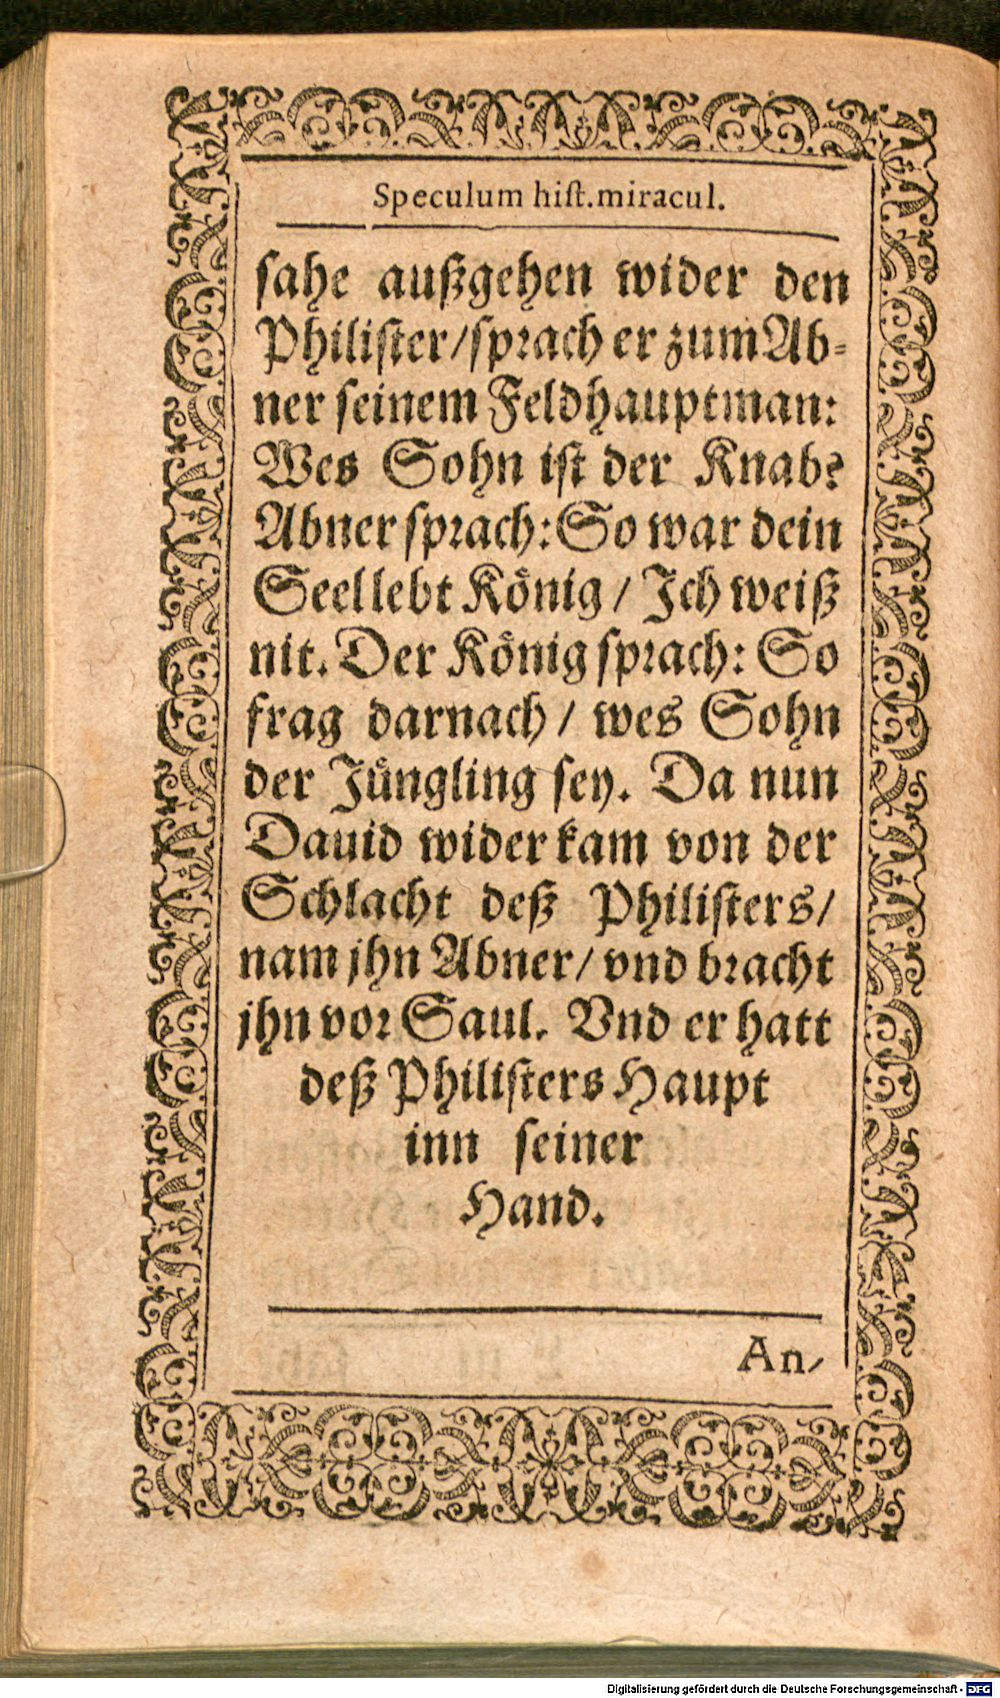 Speculum hiſt. miracul.
ſahe außgehen wider den
Philiſter/ſprach er zum Ab-
ner ſeinem Feldhauptman:
Wes Sohn iſt der Knab?
Abner ſprach: So war dein
Seel lebt König / Ich weiß
nit. Der König ſprach: So
frag darnach / wes Sohn
der Jüngling ſey. Da nun
Dauid wider kam von der
Schlacht deß Philiſters/
nam jhn Abner/ vnd bracht
jhn vor Saul. Vnd er hatt
deß Philiſters Haupt
inn ſeiner
Hand.
An-
Digitalisierung gefördert durch die Deutsche Forschungsgemeinschaft - DFG